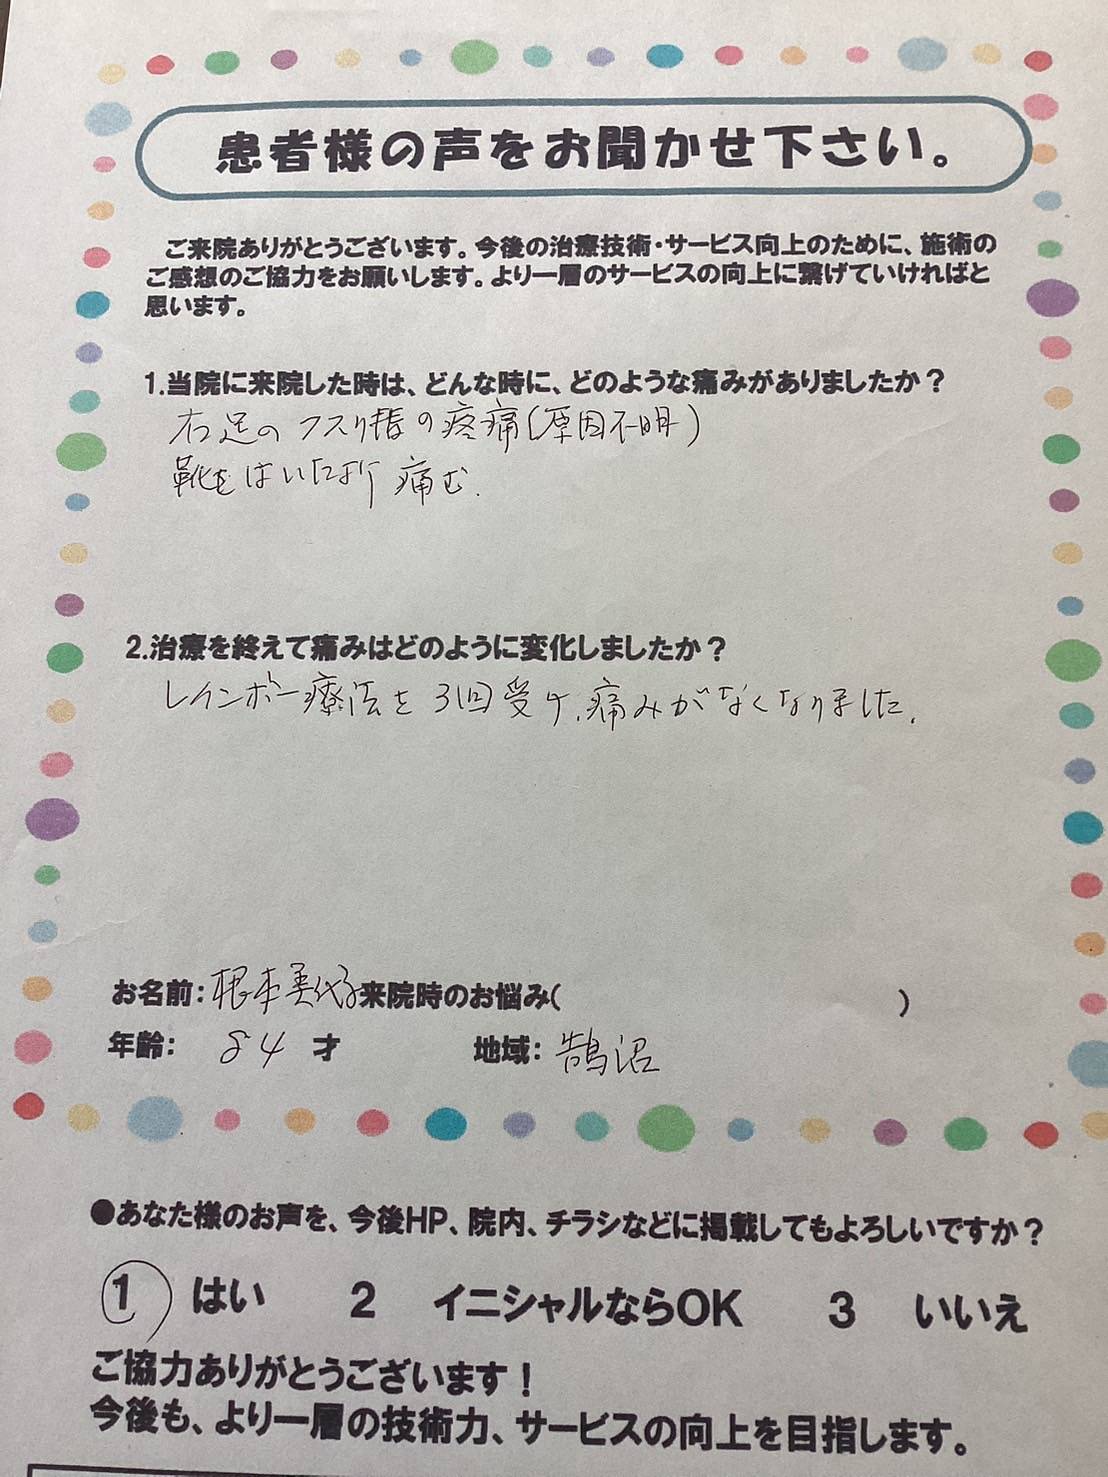 患者様の声をお聞かせ下さい。
ご来院ありがとうございます。今後の治療技術・サービス向上のために、施術の
ご感想のご協力をお願いします。より一層のサービスの向上に繋げていければと
思います。
1.当院に来院した時は、どんな時に、どのような痛みがありましたか？
右足のクスリ指の疼痛(原因不明)
靴をはいたより痛む.
2.治療を終えて痛みはどのように変化しましたか？
レインボー療法を3回受け、痛みがなくなりました.
お名前：根本美代子来院時のお悩み(　)
年齢： 84 才　地域：鵠沼
●あなた様のお声を、今後HP、院内、チラシなどに掲載してもよろしいですか？
1 はい 2 イニシャルならOK 3 いいえ
ご協力ありがとうございます！
今後も、より一層の技術力、サービスの向上を目指します。